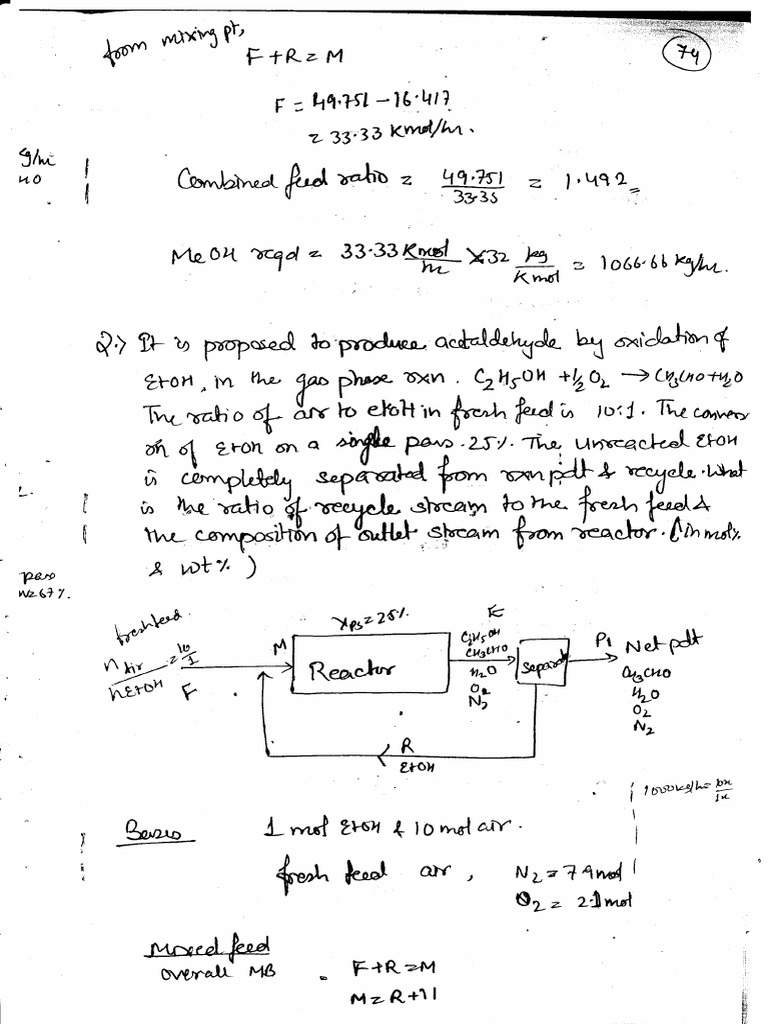 from mixing pt,
74
F + R = M
F = 49.751 - 16.417
= 33.33 Kmol/hr.
Combined feed ratio = 49.751 / 33.35 = 1.492
MeOH reqd = 33.33 Kmol/hr × 32 kg/Kmol = 1066.66 kg/hr.
Q.> It is proposed to produce acetaldehyde by oxidation of
EtOH, in the gas phase rxn. C2H5OH + 1/2 O2 → CH3CHO + H2O
The ratio of air to etoH in fresh feed is 10:1. The convers
on of EtOH on a single pass. 25%. The unreacted EtOH
is completely separated from rxn pdt & recycle. What
is the ratio of recycle stream to the fresh feed &
the composition of outlet stream from reactor. (in mol%
& wt%)
pass
67%.
fresh feed
n Air / n EtOH = 10/1
F
M
xps = 25%.
Reactor
E
C2H5OH
CH3CHO
H2O
O2
N2
Separat
P1 Net pdt
CH3CHO
H2O
O2
N2
R
EtOH
1000 kg/hr =
Basis 1 mol EtOH & 10 mol air.
fresh feed air, N2 = 7.9 mol
O2 = 2.1 mol
Mixed feed
overall MB = F + R = M
M = R + 11